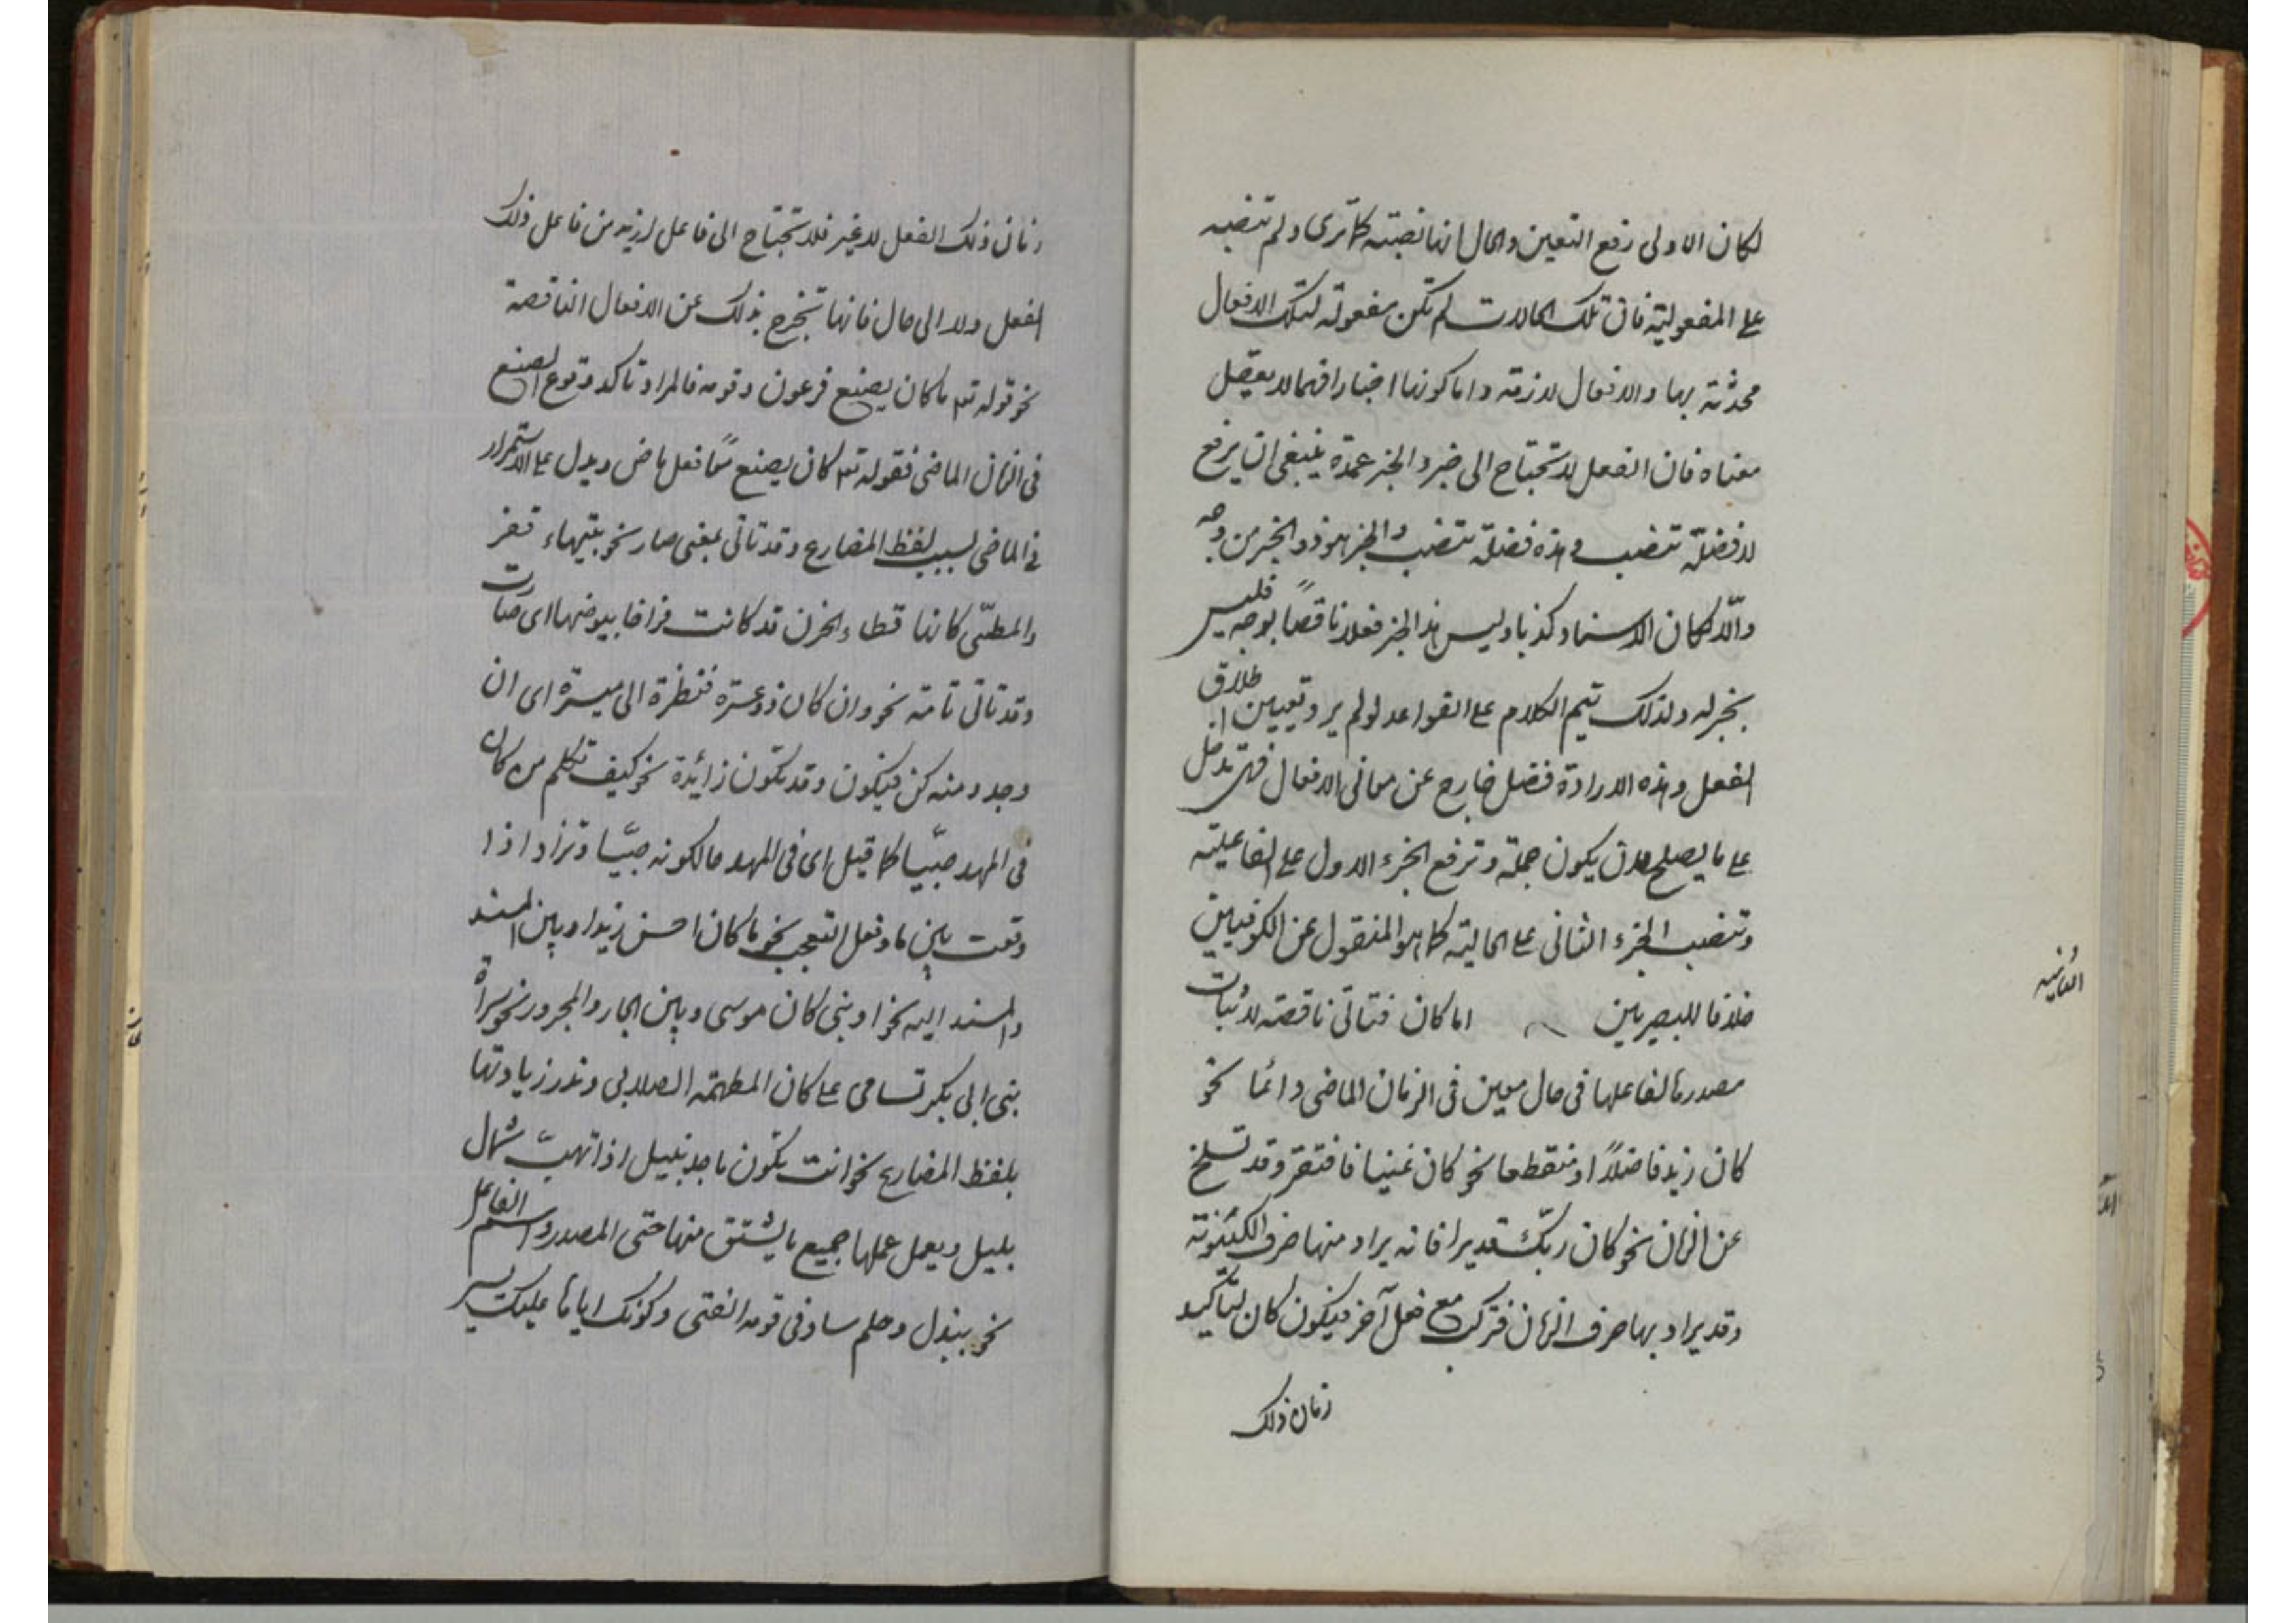 لكان الاولى رفع التعين والحال انها نصبته كما ترى ولم تنصبه
على المفعولية فان تلك الحالات لم تكن مفعولة لتلك الافعال
محدثة بها والافعال لازمة واما كونها اخبارا فمما لا يعقل
معناه فان الفعل لا يحتاج الى خبر والخبر عمدة ينبغي ان يرفع
لا فضلة تنصب وهذه فضلة تنصب والخبر هو ذو الخبر من وجه
والّا لكان الاسناد كذبا وليس هذا الخبر فعلا ناقصاً بوجه فليس
بخبر له ولذلك يتم الكلام على القواعد لو لم يرد تعيين اطلاق
الفعل وهذه الارادة فضل خارج عن معاني الافعال فهي تدخل
على ما يصلح لان يكون جملة وترفع الجزء الاول على الفاعلية
وتنصب الجزء الثاني على الحالية كما هو المنقول عن الكوفيين
خلافا للبصريين اما كان فتاتي ناقصة لاثبات
مصدرها لفاعلها في حال معين في الزمان الماضي دائما نحو
كان زيد فاضلاً او منقطعا نحو كان غنيا فافتقر وقد تسلخ
عن الزمان نحو كان ربّك قديرا فانه يراد منها صرف الكينونة
وقد يراد بها صرف الزمان فتركب مع فعل آخر فيكون كان لتأكيد
زمان ذلك
الثانية
زمان ذلك الفعل لا غير فلا تحتاج الى فاعل ازيد من فاعل ذلك
الفعل ولا الى حال فانها تخرج بذلك عن الافعال الناقصة
نحو قوله تع ما كان يصنع فرعون وقومه فالمراد تاكد وقوع الصنع
في الزمان الماضي فقوله تع كان يصنع معًا فعل ماض ويدل على الاستمرار
في الماضي لسبب لفظ المضارع وقد تاتي بمعنى صار نحو بتيهاء قفر
والمطيّ كانها قطاء الحزن قد كانت فراخا بيوضها اى صارت
وقد تاتي تامة نحو وان كان ذو عسرة فنظرة الى ميسرة اى ان
وجد ومنه كن فيكون وقد تكون زائدة نحو كيف نكلم من كان
في المهد صبّيا كما قيل اى في المهد حالكونه صبيّا وتزاد اذا
وقعت بين ما وفعل التعجب نحو ما كان احسن زيدا وبين المسند
والمسند اليه نحو او نبي كان موسى وبين الجار والمجرور نحو سراة
بني ابي بكر تسامى على كان المطهمة الصلاب وندر زيادتها
بلفظ المضارع نحو انت تكون ماجد نبيل اذا تهبّ شمال
بليل ويعمل عملها جميع ما يشتق منها حتى المصدر واسم الفاعل
نحو ببذل وحلم ساد في قومه الفتى وكونك اياها عليك يسير